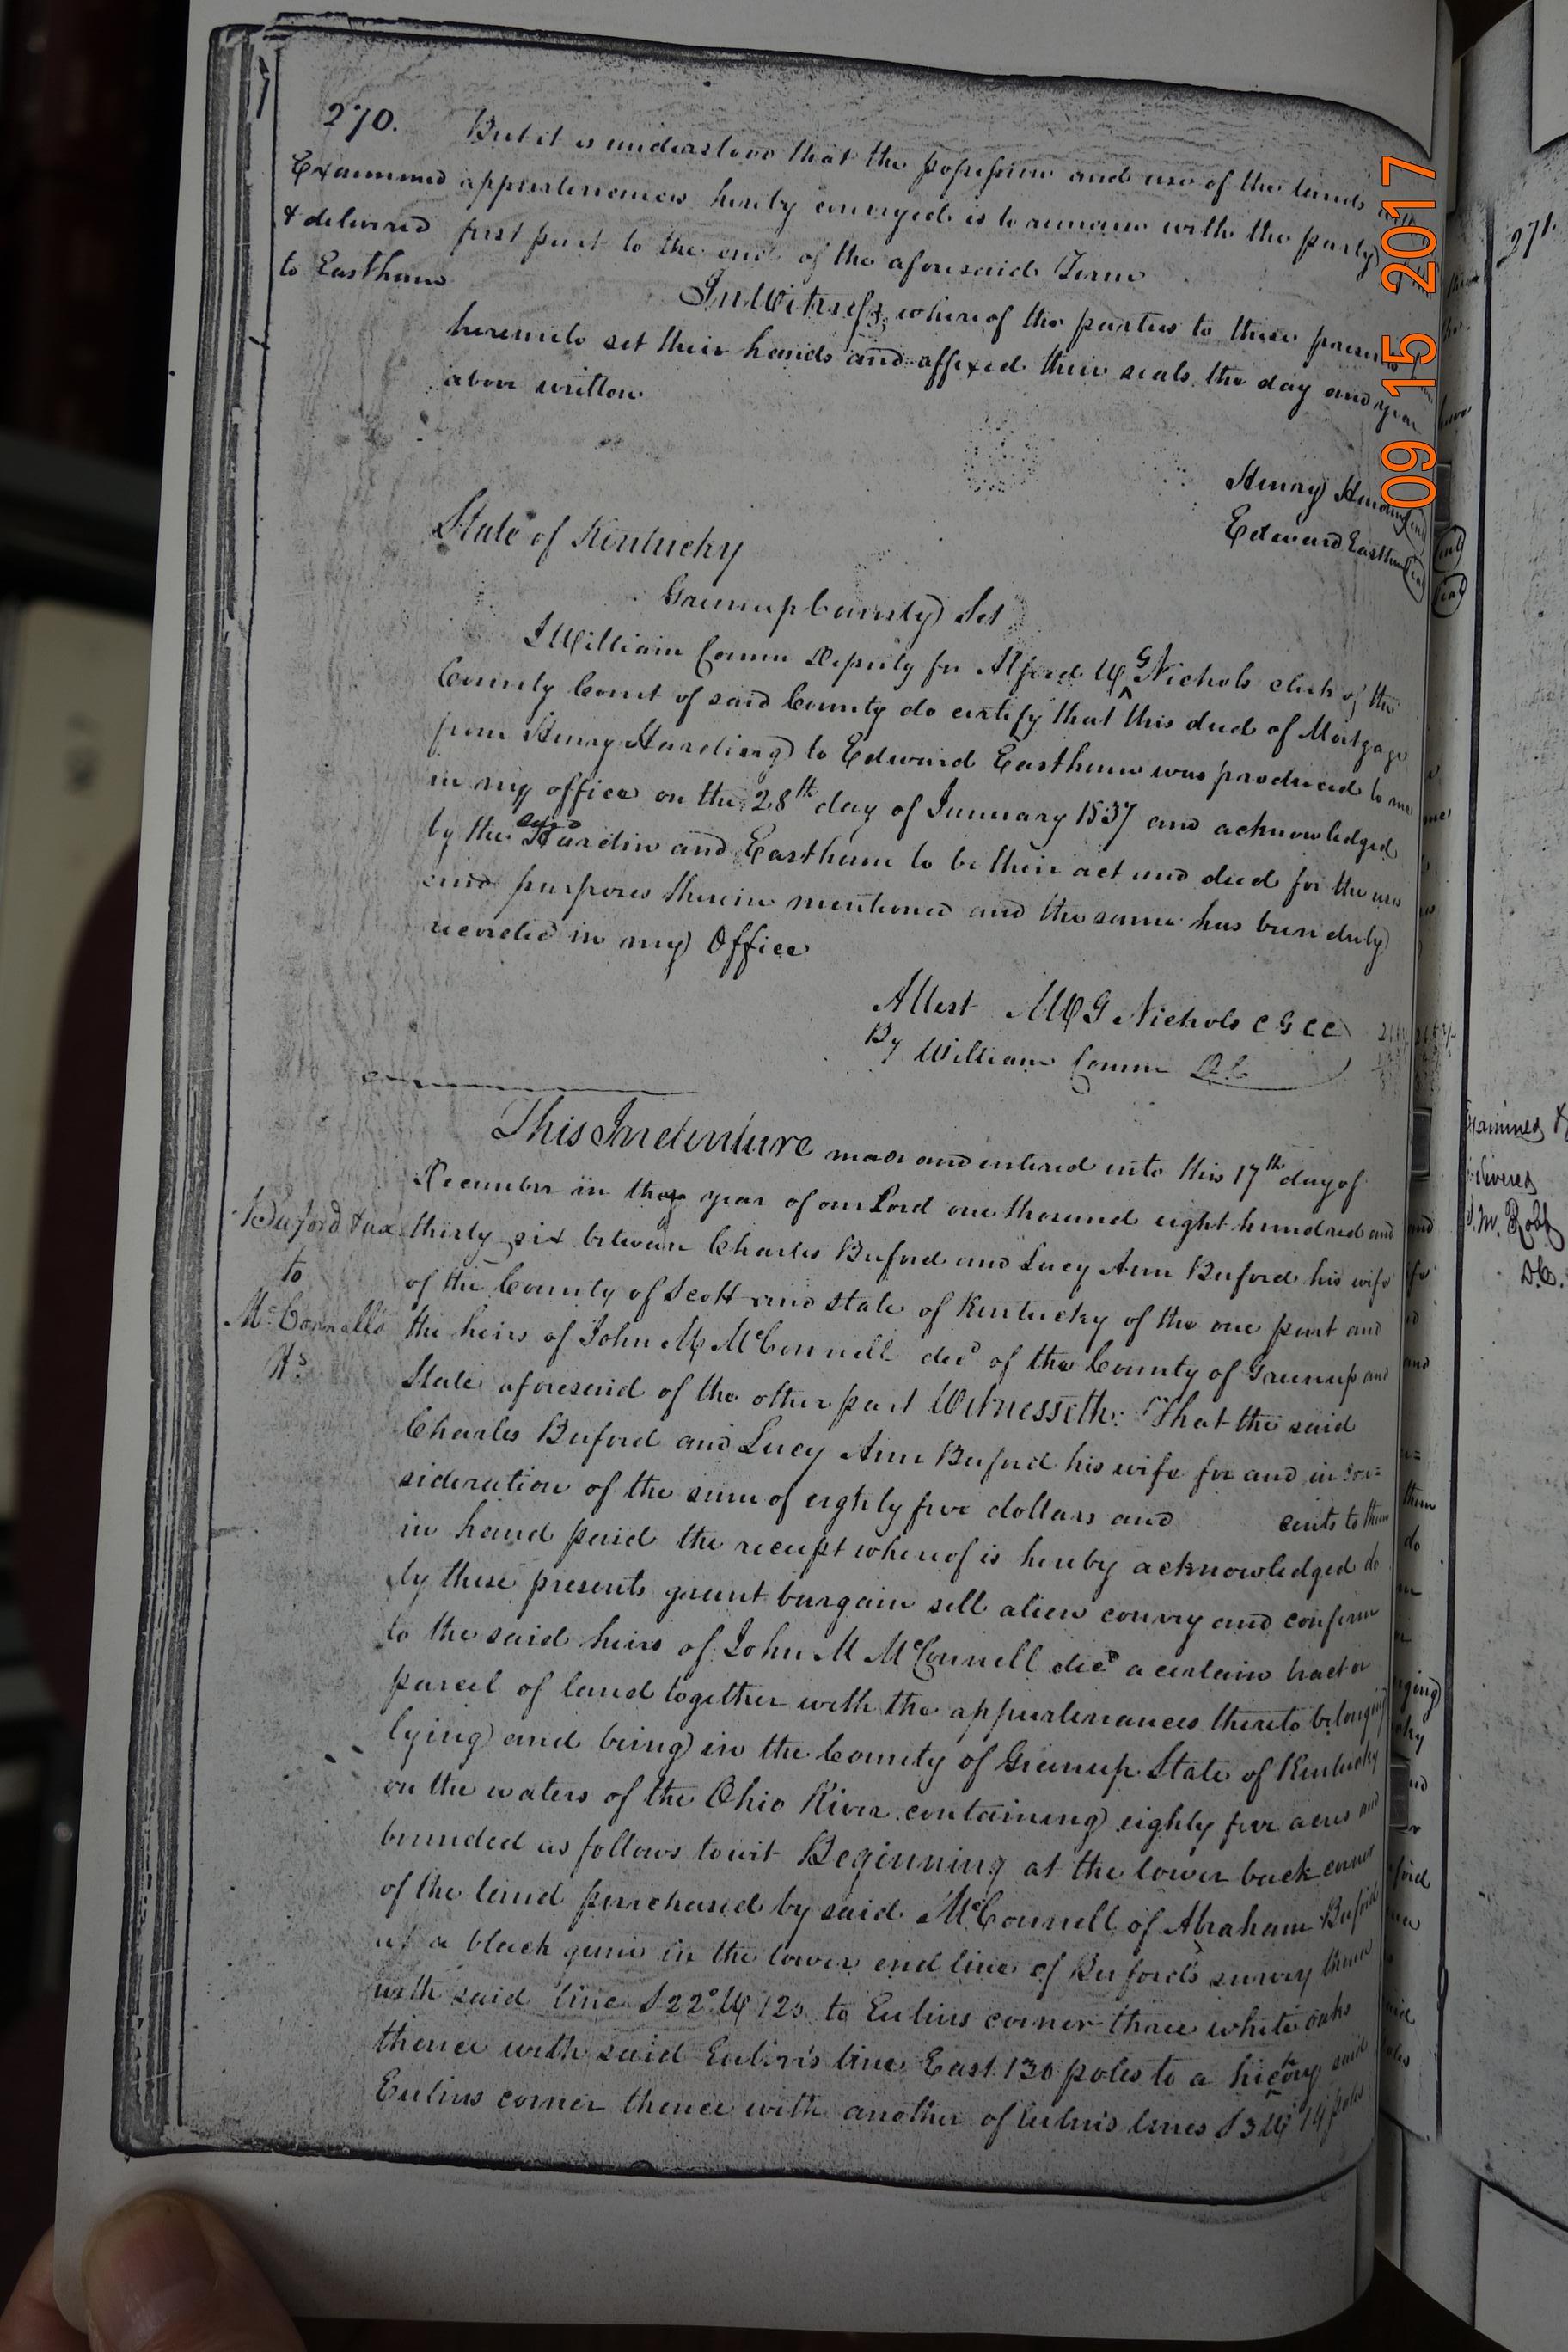 270.
But it is understood that the possession and use of the lands and
Examined
appurtenences hereby conveyed is to remain with the party
& delivered
first part to the end of the aforesaid Term
to Eastham
In Witness whereof the parties to these presents
hereunto set their hands and affixed their seals the day and year
above written
Henry Harding
Edward Eastham
State of Kentucky
Greenup County Sct
I William Conner Deputy for Alfred W G Nichols clerk of the
County Court of said County do certify that this deed of Mortgage
from Henry Harding to Edward Eastham was produced to me
in my office on the 28th day of January 1837 and acknowledged
by the said Hardin and Eastham to be their act and deed for the uses
and purposes therein mentioned and the same has been duly
recorded in my Office
Attest AWG Nichols C G C C
By William Conner D.C.
This Indenture made and entered into this 17th day of
December in the year of our Lord one thousand eight hundred and
Buford & ux
thirty six between Charles Buford and Lucy Ann Buford his wife
to
of the County of Scott and state of Kentucky of the one part and
McConnells
the heirs of John M McConnell decd of the County of Greenup and
Hs
State aforesaid of the other part Witnesseth: That the said
Charles Buford and Lucy Ann Buford his wife for and in con=
sideration of the sum of eighty five dollars and cents to them
in hand paid the receipt whereof is hereby acknowledged do
by these presents grant bargain sell alien convey and confirm
to the said heirs of John M McConnell decd a certain tract or
parcel of land together with the appurtenances thereto belonging
lying and being in the County of Greenup State of Kentucky
on the waters of the Ohio River containing eighty five acres and
bounded as follows towit Beginning at the lower back corner
of the land purchased by said McConnell of Abraham Buford
at a black gum in the lower end line of Buford's survey thence
with said line S 22° W 120 to Eulins corner three white oaks
thence with said Eulin's line East 130 poles to a hickory said
Eulins corner thence with another of Eulin's lines S 3 W 14 poles
271.
Examined &
delivered
J. M. Robb
D.C.
09 15 2017